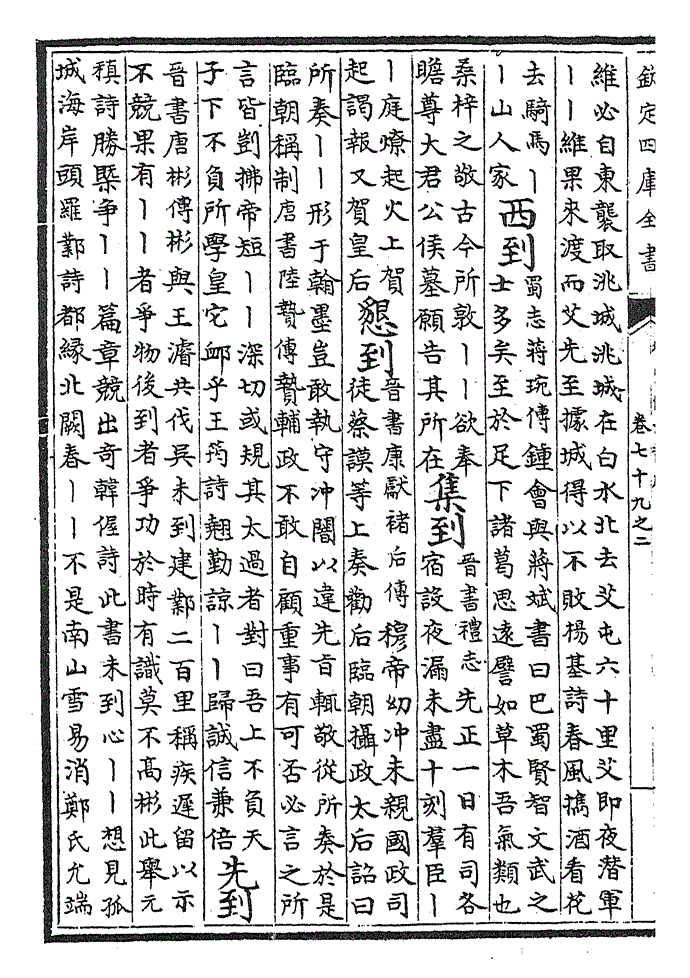 欽定四庫全書
卷七十九之二
維必自東襲取洮城洮城在白水北去艾屯六十里艾即夜潛軍
丨丨維果來渡而艾先至據城得以不敗楊基詩春風擕酒看花
去騎馬丨
丨山人家
西到
蜀志蔣琬傳鍾會與蔣斌書曰巴蜀賢智文武之
士多矣至於足下諸葛思遠譬如草木吾氣類也
桑梓之敬古今所敦丨丨欲奉
瞻尊大君公侯墓願告其所在
集到
晉書禮志先正一日有司各
宿設夜漏未盡十刻羣臣丨
丨庭燎起火上賀
起謁報又賀皇后
懇到
晉書康獻禇后傳穆帝幼冲未親國政司
徒蔡謨等上奏勸后臨朝攝政太后詔曰
所奏丨丨形于翰墨豈敢執守冲闇以違先旨輒敬從所奏於是
臨朝稱制唐書陸贄傳贄輔政不敢自顧重事有可否必言之所
言皆剴拂帝短丨丨深切或規其太過者對曰吾上不負天
子下不負所學皇它卹乎王筠詩翹勤諒丨丨歸誠信兼倍
先到
晉書唐彬傳彬與王濬共伐吳未到建鄴二百里稱疾遲留以示
不競果有丨丨者爭物後到者爭功於時有識莫不髙彬此舉元
稹詩勝槩争丨丨篇章競出奇韓偓詩此書未到心丨丨想見孤
城海岸頭羅鄴詩都緣北闕春丨丨不是南山雪易消鄭氏允端